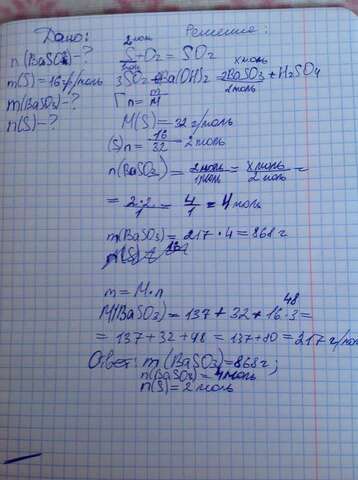 Дано: Решение:
2 моль
n(BaSO3)-? S+O2 = SO2
1 моль x моль
m(S)=16 г/моль 3SO2+Ba(OH)2 2BaSO3+H2SO4
2 моль
m(BaSO3)-? Г n=m/M
n(S)-? M(S)=32 г/моль
(S)n=16/32=2 моль
n(BaSO3)=2 моль/1 моль=x моль/2 моль=
=2·2/1=4/1=4 моль
m(BaSO3)=217·4=868 г
m=M·n
48
M(BaSO3)=137+32+16·3=
=137+32+48=137+80=217 г/моль
Ответ: m(BaSO3)=868г;
n(BaSO3)=4 моль
n(S)=2 моль